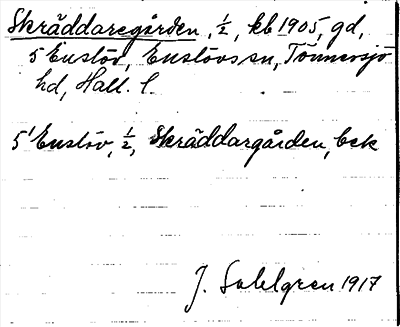 Skräddaregården, ½, kb 1905, gd,
5 Enslöv, Enslövs sn, Tönnersjö
hd, Hall. l.
5 Enslöv, ½, Skräddargården, bek
J. Sahlgren 1917